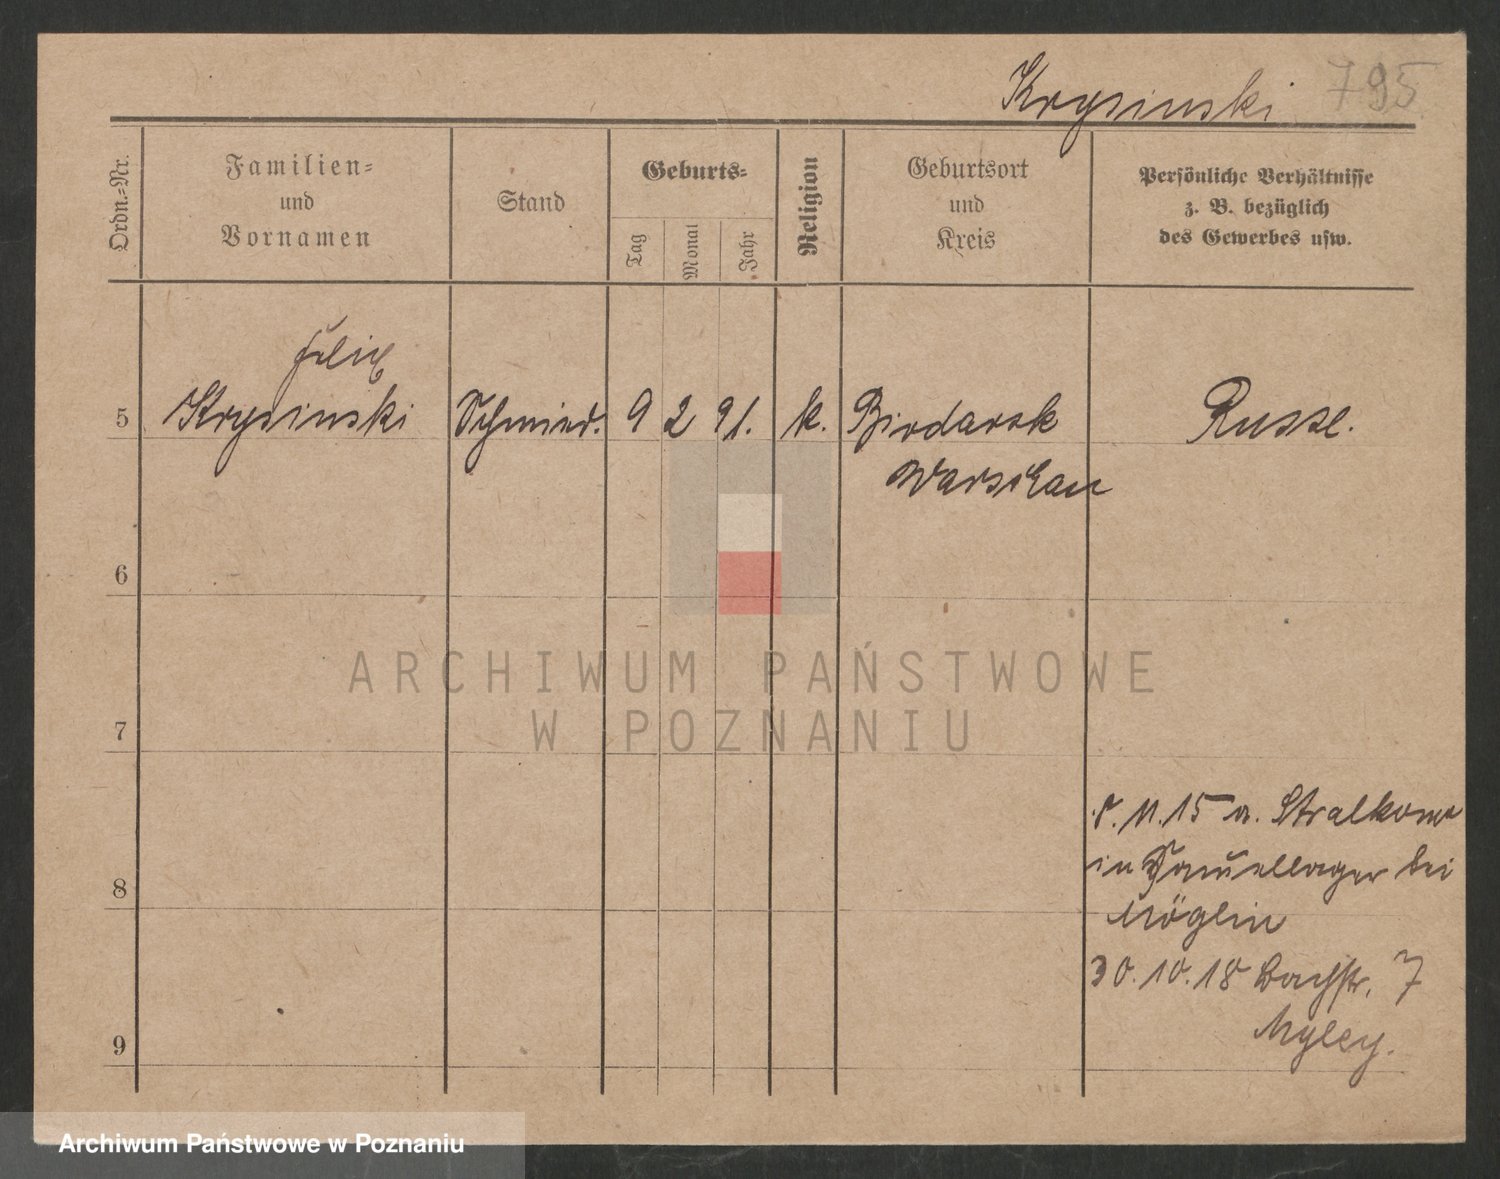 Krysinski 795
Ordn.-Nr.
Familien-
und
Vornamen
Stand
Geburts-
Tag
Monat
Jahr
Religion
Geburtsort
und
Kreis
Persönliche Verhältnisse
z. B. bezüglich
des Gewerbes usw.
Felix
5 Krysinski Schmied. 9 2 91. k.
Warschau
Russe.
6
7
ARCHIWUM PAŃSTWOWE
W POZNANIU
11.15 a.
in bei
8
Möglin
30.10.18 Bachstr. 7
9
Archiwum Państwowe w Poznaniu